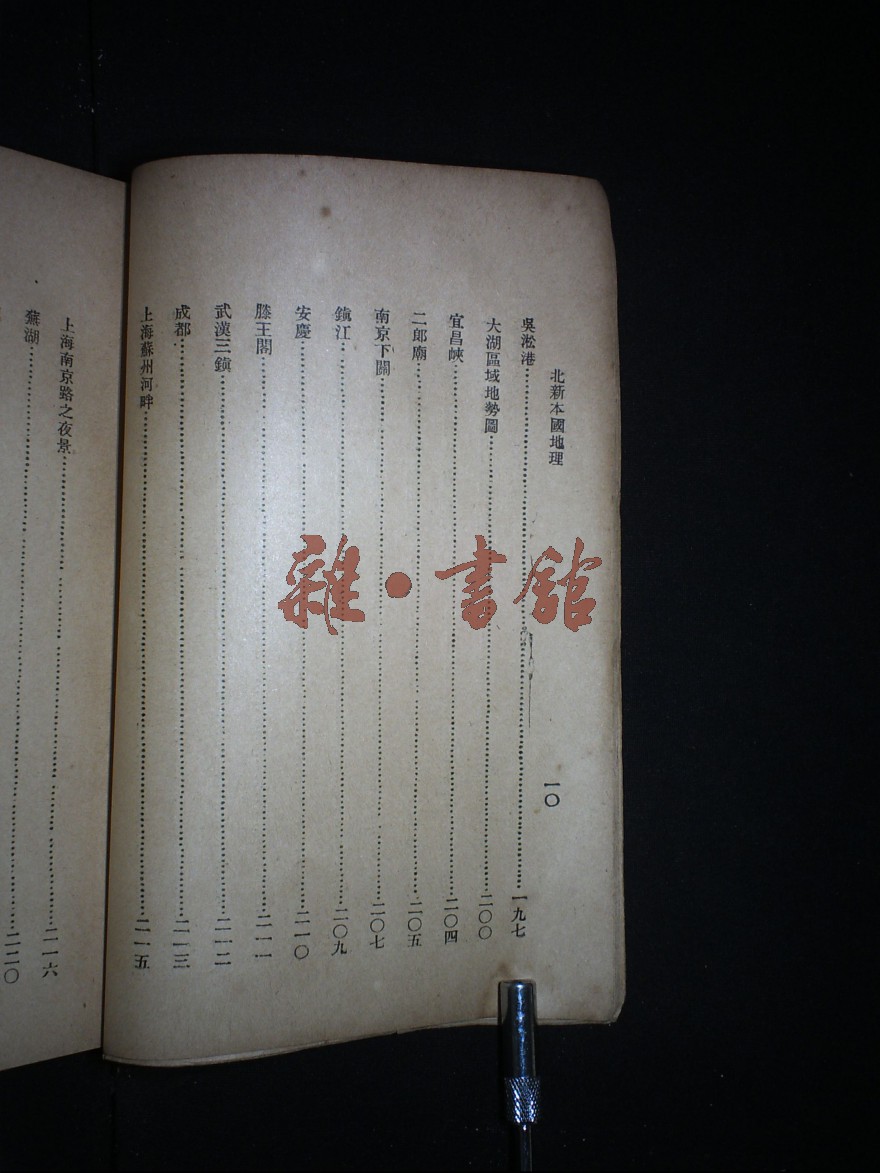 北新本國地理
一〇
吳淞港……一九七
大湖區域地勢圖……二〇〇
宜昌峽……二〇四
二郎廟……二〇五
南京下關……二〇七
鎮江……二〇九
安慶……二一〇
滕王閣……二一一
武漢三鎮……二一二
成都……二一三
上海蘇州河畔……二一五
上海南京路之夜景……二一六
蕪湖……二二〇
雜·書館